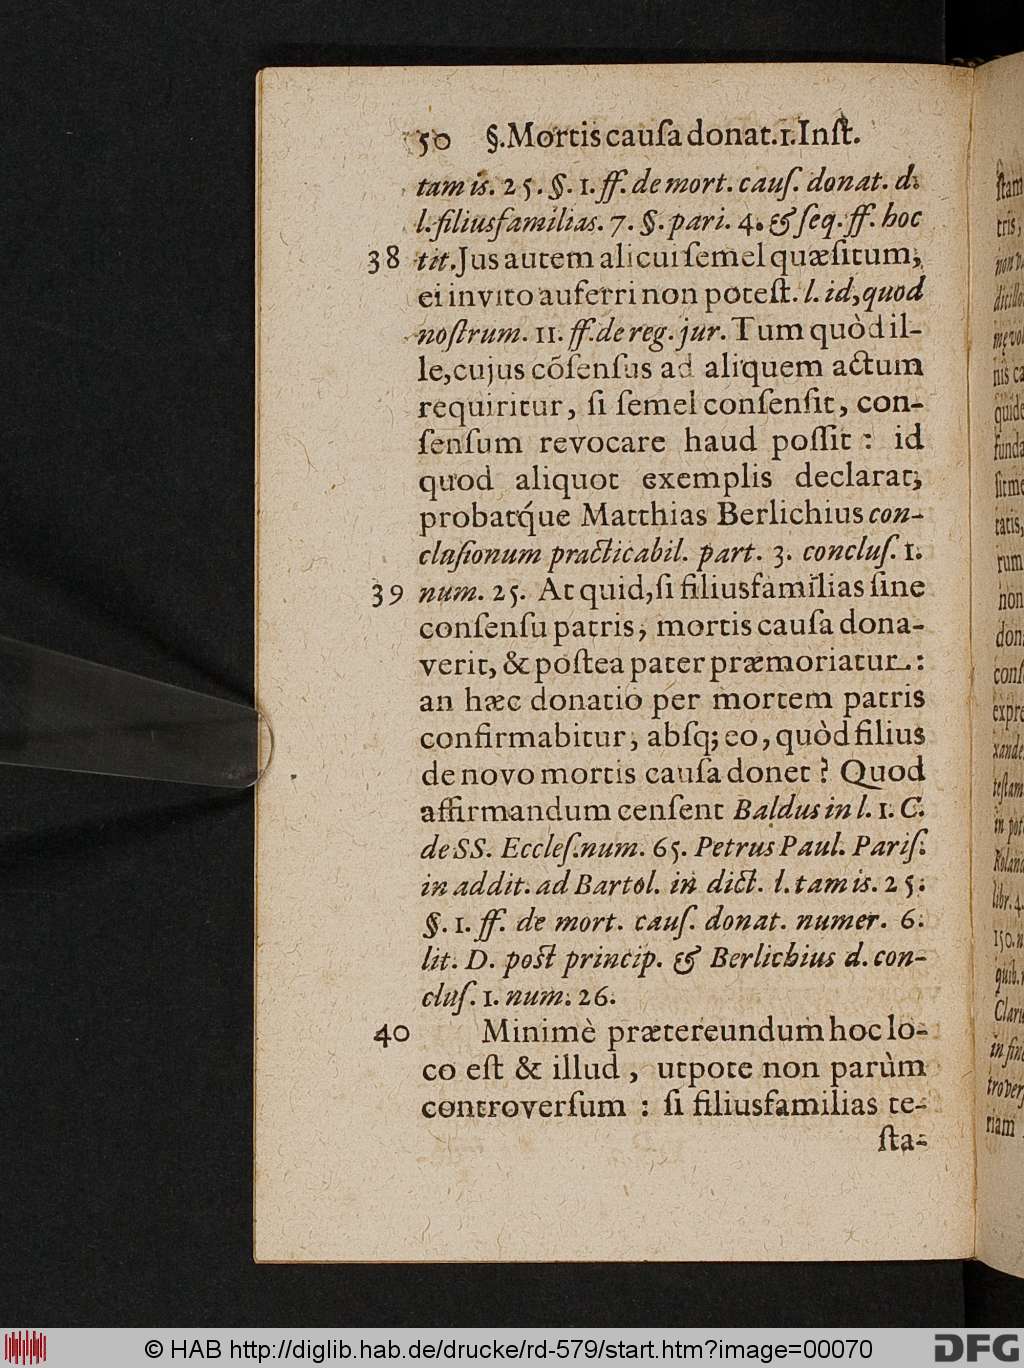 50 §. Mortis cauſa donat. 1. Inſt.
tam is. 25. §. 1. ff. de mort. cauſ. donat. d.
l. filiusfamilias. 7. §. pari. 4. & ſeq. ff. hoc
38 tit. Jus autem alicui ſemel quæſitum,
ei invito auferri non poteſt. l. id, quod
noſtrum. 11. ff. de reg. jur. Tum quòd il-
le, cujus cõſenſus ad aliquem actum
requiritur, ſi ſemel conſenſit, con-
ſenſum revocare haud poſſit : id
quod aliquot exemplis declarat,
probatq́ue Matthias Berlichius con-
cluſionum practicabil. part. 3. concluſ. 1.
39 num. 25. At quid, ſi filiusfamilias ſine
conſenſu patris, mortis cauſa dona-
verit, & poſtea pater præmoriatur :
an hæc donatio per mortem patris
confirmabitur, abſq; eo, quòd filius
de novo mortis cauſa donet ? Quod
affirmandum cenſent Baldus in l. 1. C.
de SS. Eccleſ. num. 65. Petrus Paul. Pariſ.
in addit. ad Bartol. in dict. l. tam is. 25.
§. 1. ff. de mort. cauſ. donat. numer. 6.
lit. D. poſt princip. & Berlichius d. con-
cluſ. 1. num. 26.
40 Minimè prætereundum hoc lo-
co eſt & illud, utpote non parùm
controverſum : ſi filiusfamilias te-
ſta-
© HAB http://diglib.hab.de/drucke/rd-579/start.htm?image=00070
DFG